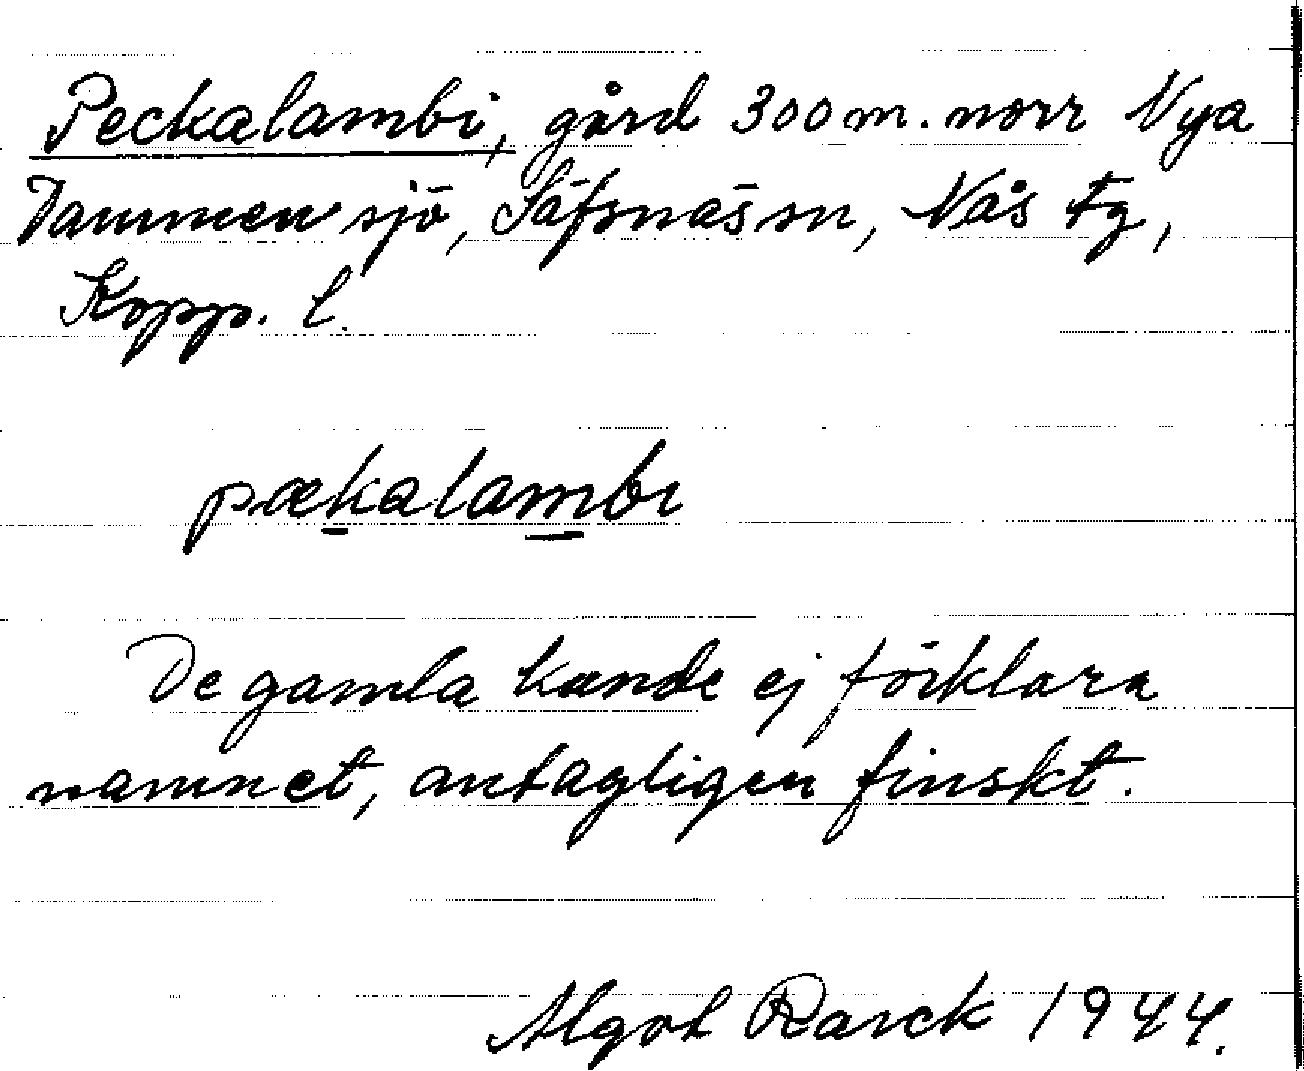 Peckalambi, gård 300 m. norr Nya
Dammen sjö, Säfsnäs sn, Nås fg,
Kopp. l.
pækalambi
De gamla kunde ej förklara
namnet, antagligen finskt.
Algot Rarck 1944.